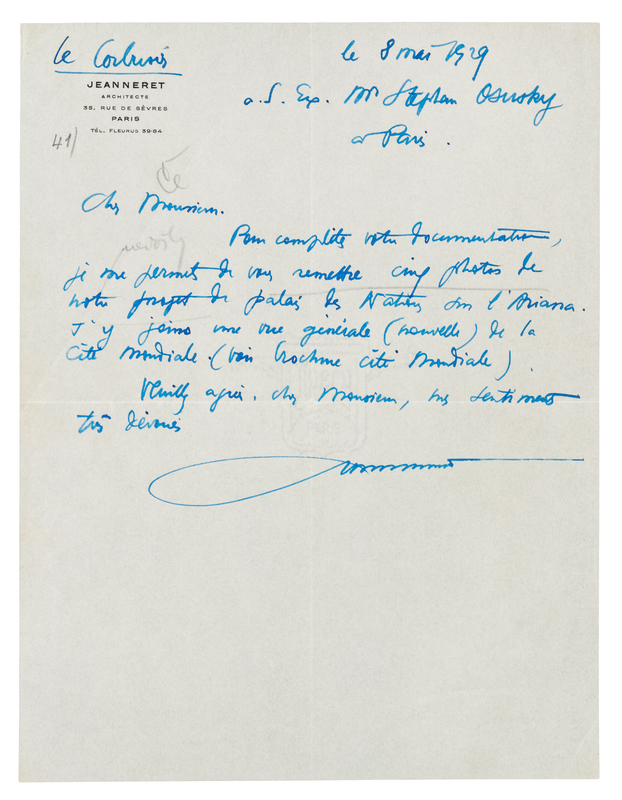 Le Corbusier
le 8 mai 1929
JEANNERET
ARCHITECTE
35, RUE DE SÈVRES
PARIS
TÉL. FLEURUS 39-84
a. S. Exc. Mr Stephan Osusky
à Paris.
41)
Cher Monsieur.
Pour compléter votre documentation,
je me permets de vous remettre cinq photos de
notre projet de palais des Nations sur l'Ariana.
J'y joins une vue générale (nouvelle) de la
Cité Mondiale. (voir brochure cité Mondiale).
Veuillez agréer, cher Monsieur, mes sentiments
très dévoués